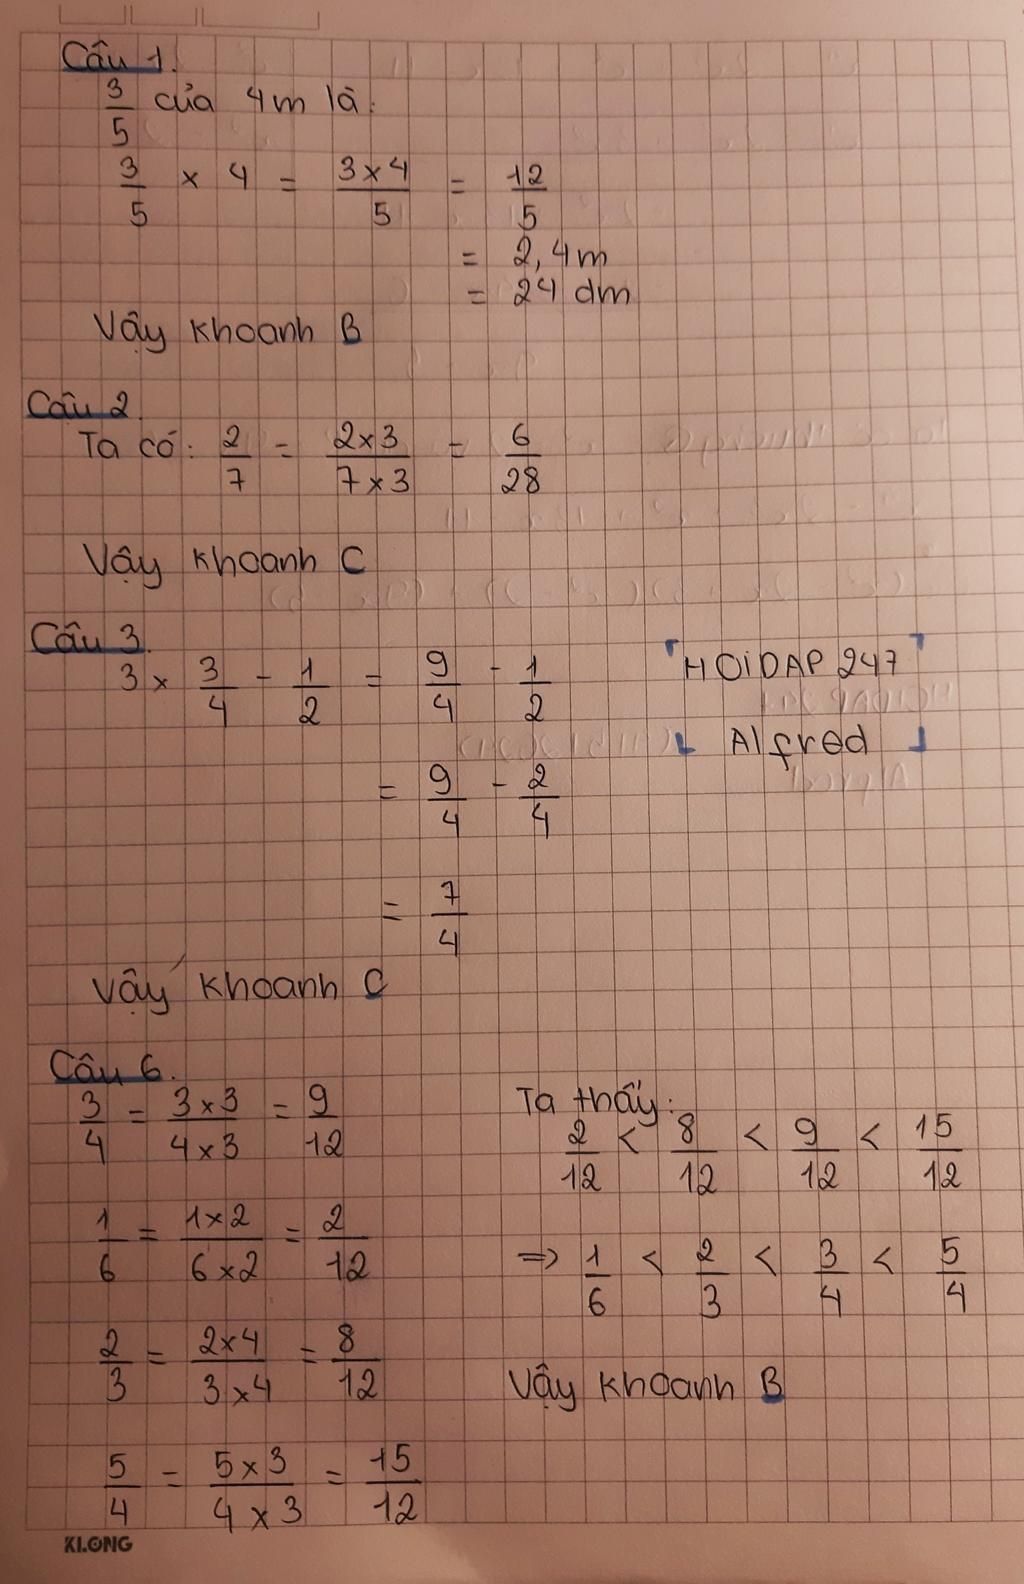 Câu 1.
3/5 của 4m là:
3/5 × 4 = 3×4/5 = 12/5
= 2,4m
= 24 dm
Vậy khoanh B
Câu 2.
Ta có: 2/7 = 2×3/7×3 = 6/28
Vậy khoanh C
Câu 3.
3 × 3/4 - 1/2 = 9/4 - 1/2
= 9/4 - 2/4
= 7/4
Vậy khoanh C
「HOIDAP 247
Alfred」
Câu 6.
3/4 = 3×3/4×3 = 9/12
1/6 = 1×2/6×2 = 2/12
2/3 = 2×4/3×4 = 8/12
5/4 = 5×3/4×3 = 15/12
Ta thấy:
2/12 < 8/12 < 9/12 < 15/12
=> 1/6 < 2/3 < 3/4 < 5/4
Vậy khoanh B
KLONG